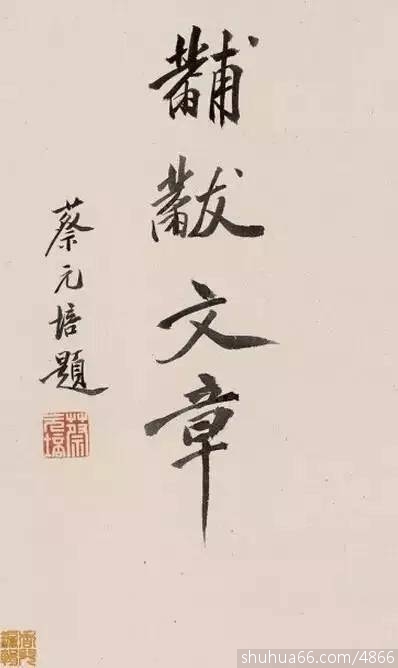 黼黻文章
蔡元培題
蔡元培
shuhua66.com/4866